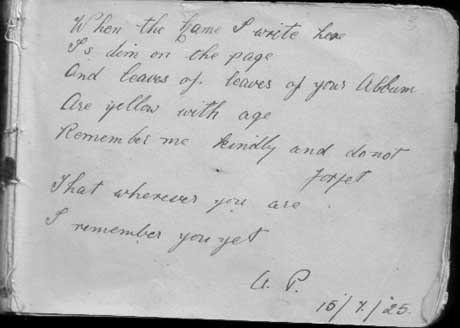 When the Name I write here
Is dim on the page
And leaves of leaves of your Album
Are yellow with age
Remember me kindly and do not
forget
That wherever you are
I remember you yet
A. P.
15/7/25.